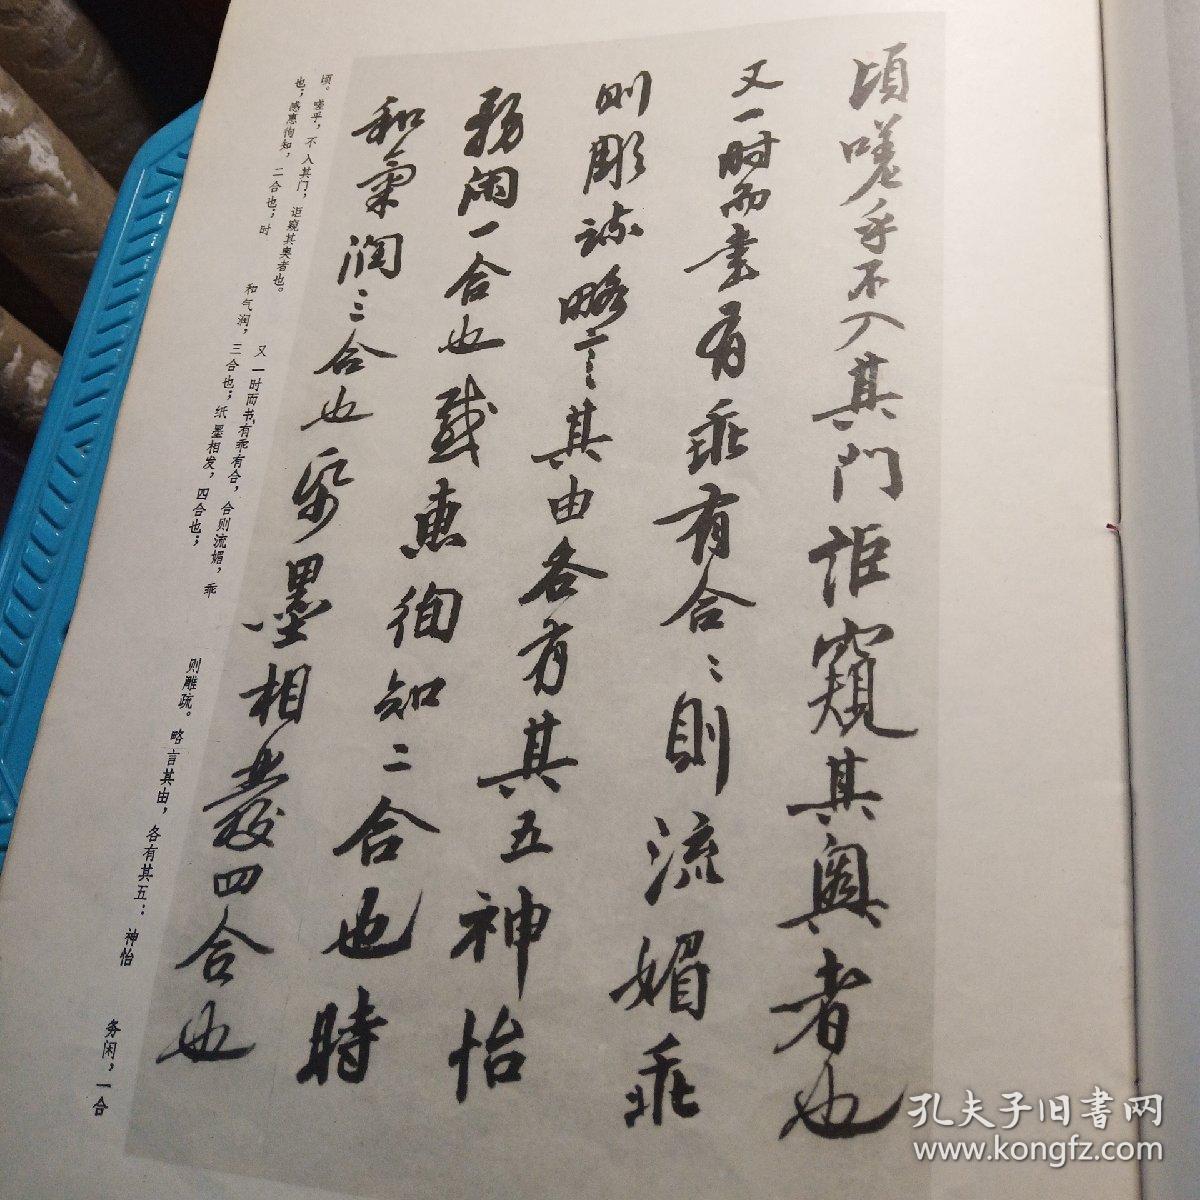 頃嗟乎不入其門詎窺其奥者也
又一时而書有乖有合〻則流媚乖
則彫疏略言其由各有其五神怡
務闲一合也感惠徇知二合也時
和氣潤三合也紙墨相發四合也
顷。嗟乎，不入其门，讵窥其奥者也。
又一时而书，有乖有合，合则流媚，乖
则雕疏。略言其由，各有其五：神怡
务闲，一合
也；感惠徇知，二合也；时
和气润，三合也；纸墨相发，四合也；
孔夫子旧书网
www.kongfz.com